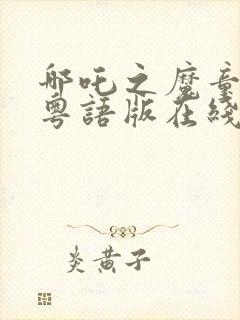 哪吒之魔童
粵語版在綫
炎黃子